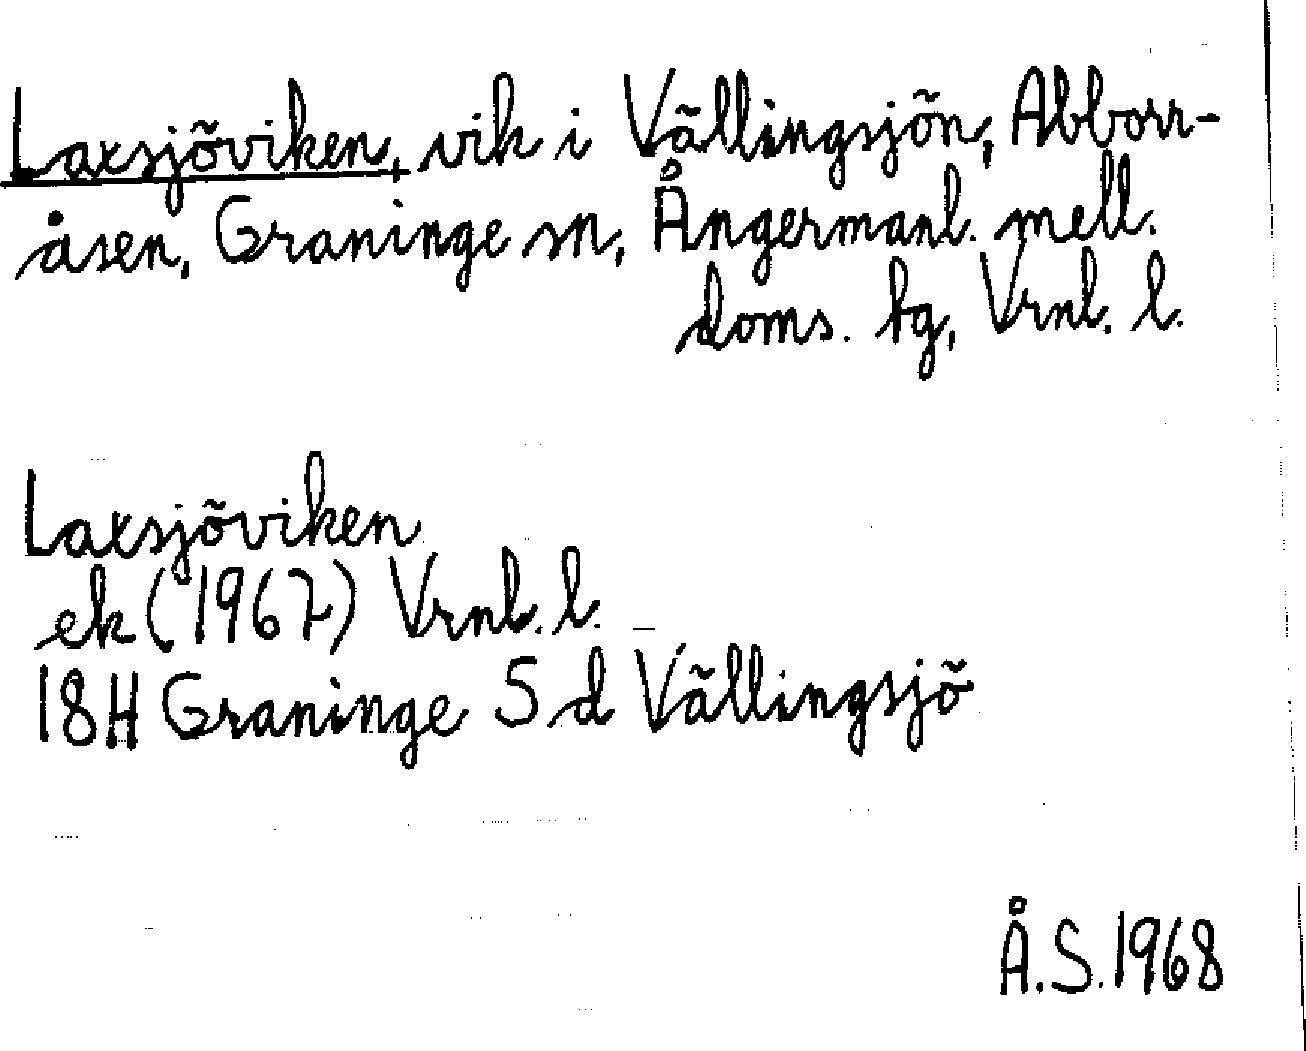 Laxsjöviken, vik i Vällingsjön, Abborr-
åsen, Graninge sn, Ångermanl. mell.
doms. tg, Vrnl. l.
Laxsjöviken
ek (1967) Vrnl. l.
18H Graninge S d Vällingsjö
Å.S. 1968